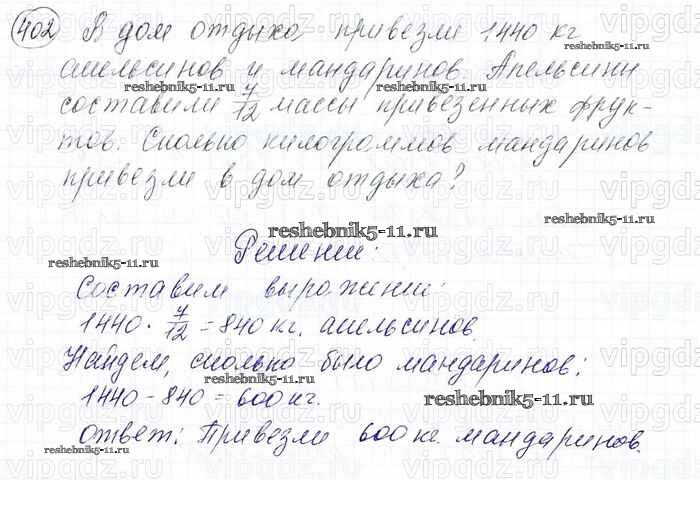 402 В дом отдыха привезли 1440 кг
апельсинов и мандаринов. Апельсины
составили 7/12 массы привезенных фрук-
тов. Сколько килограммов мандаринов
привезли в дом отдыха?
Решение:
Составим выражение:
1440 · 7/12 = 840 кг. апельсинов.
Найдем, сколько было мандаринов:
1440 - 840 = 600 кг.
Ответ: Привезли 600 кг. мандаринов.
reshebnik5-11.ru
vipgdz.ru